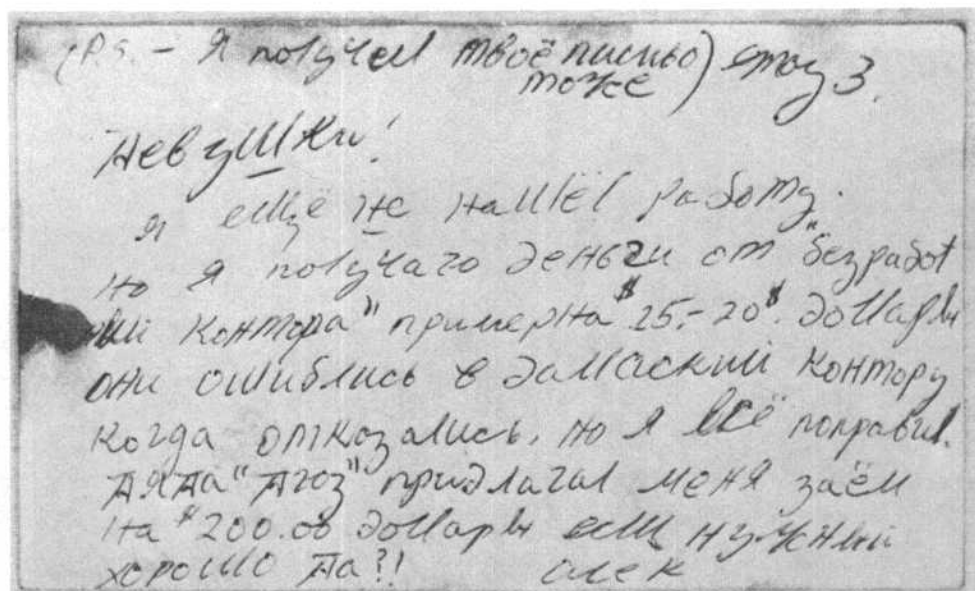 (P.S. - Я получел твоё письмо
тоже) стоу 3.
Девушки!
я ещё не нашёл работу.
но я получаю деньги от "безработ
ный контора" пример на $25.-20$. доллары
они ошиблись в даллаский контору
когда отказались, но я всё поправил.
дяда "Дюз" придлагал меня заём
на $200.00 доллары если нужный
хорошо да?! Алек